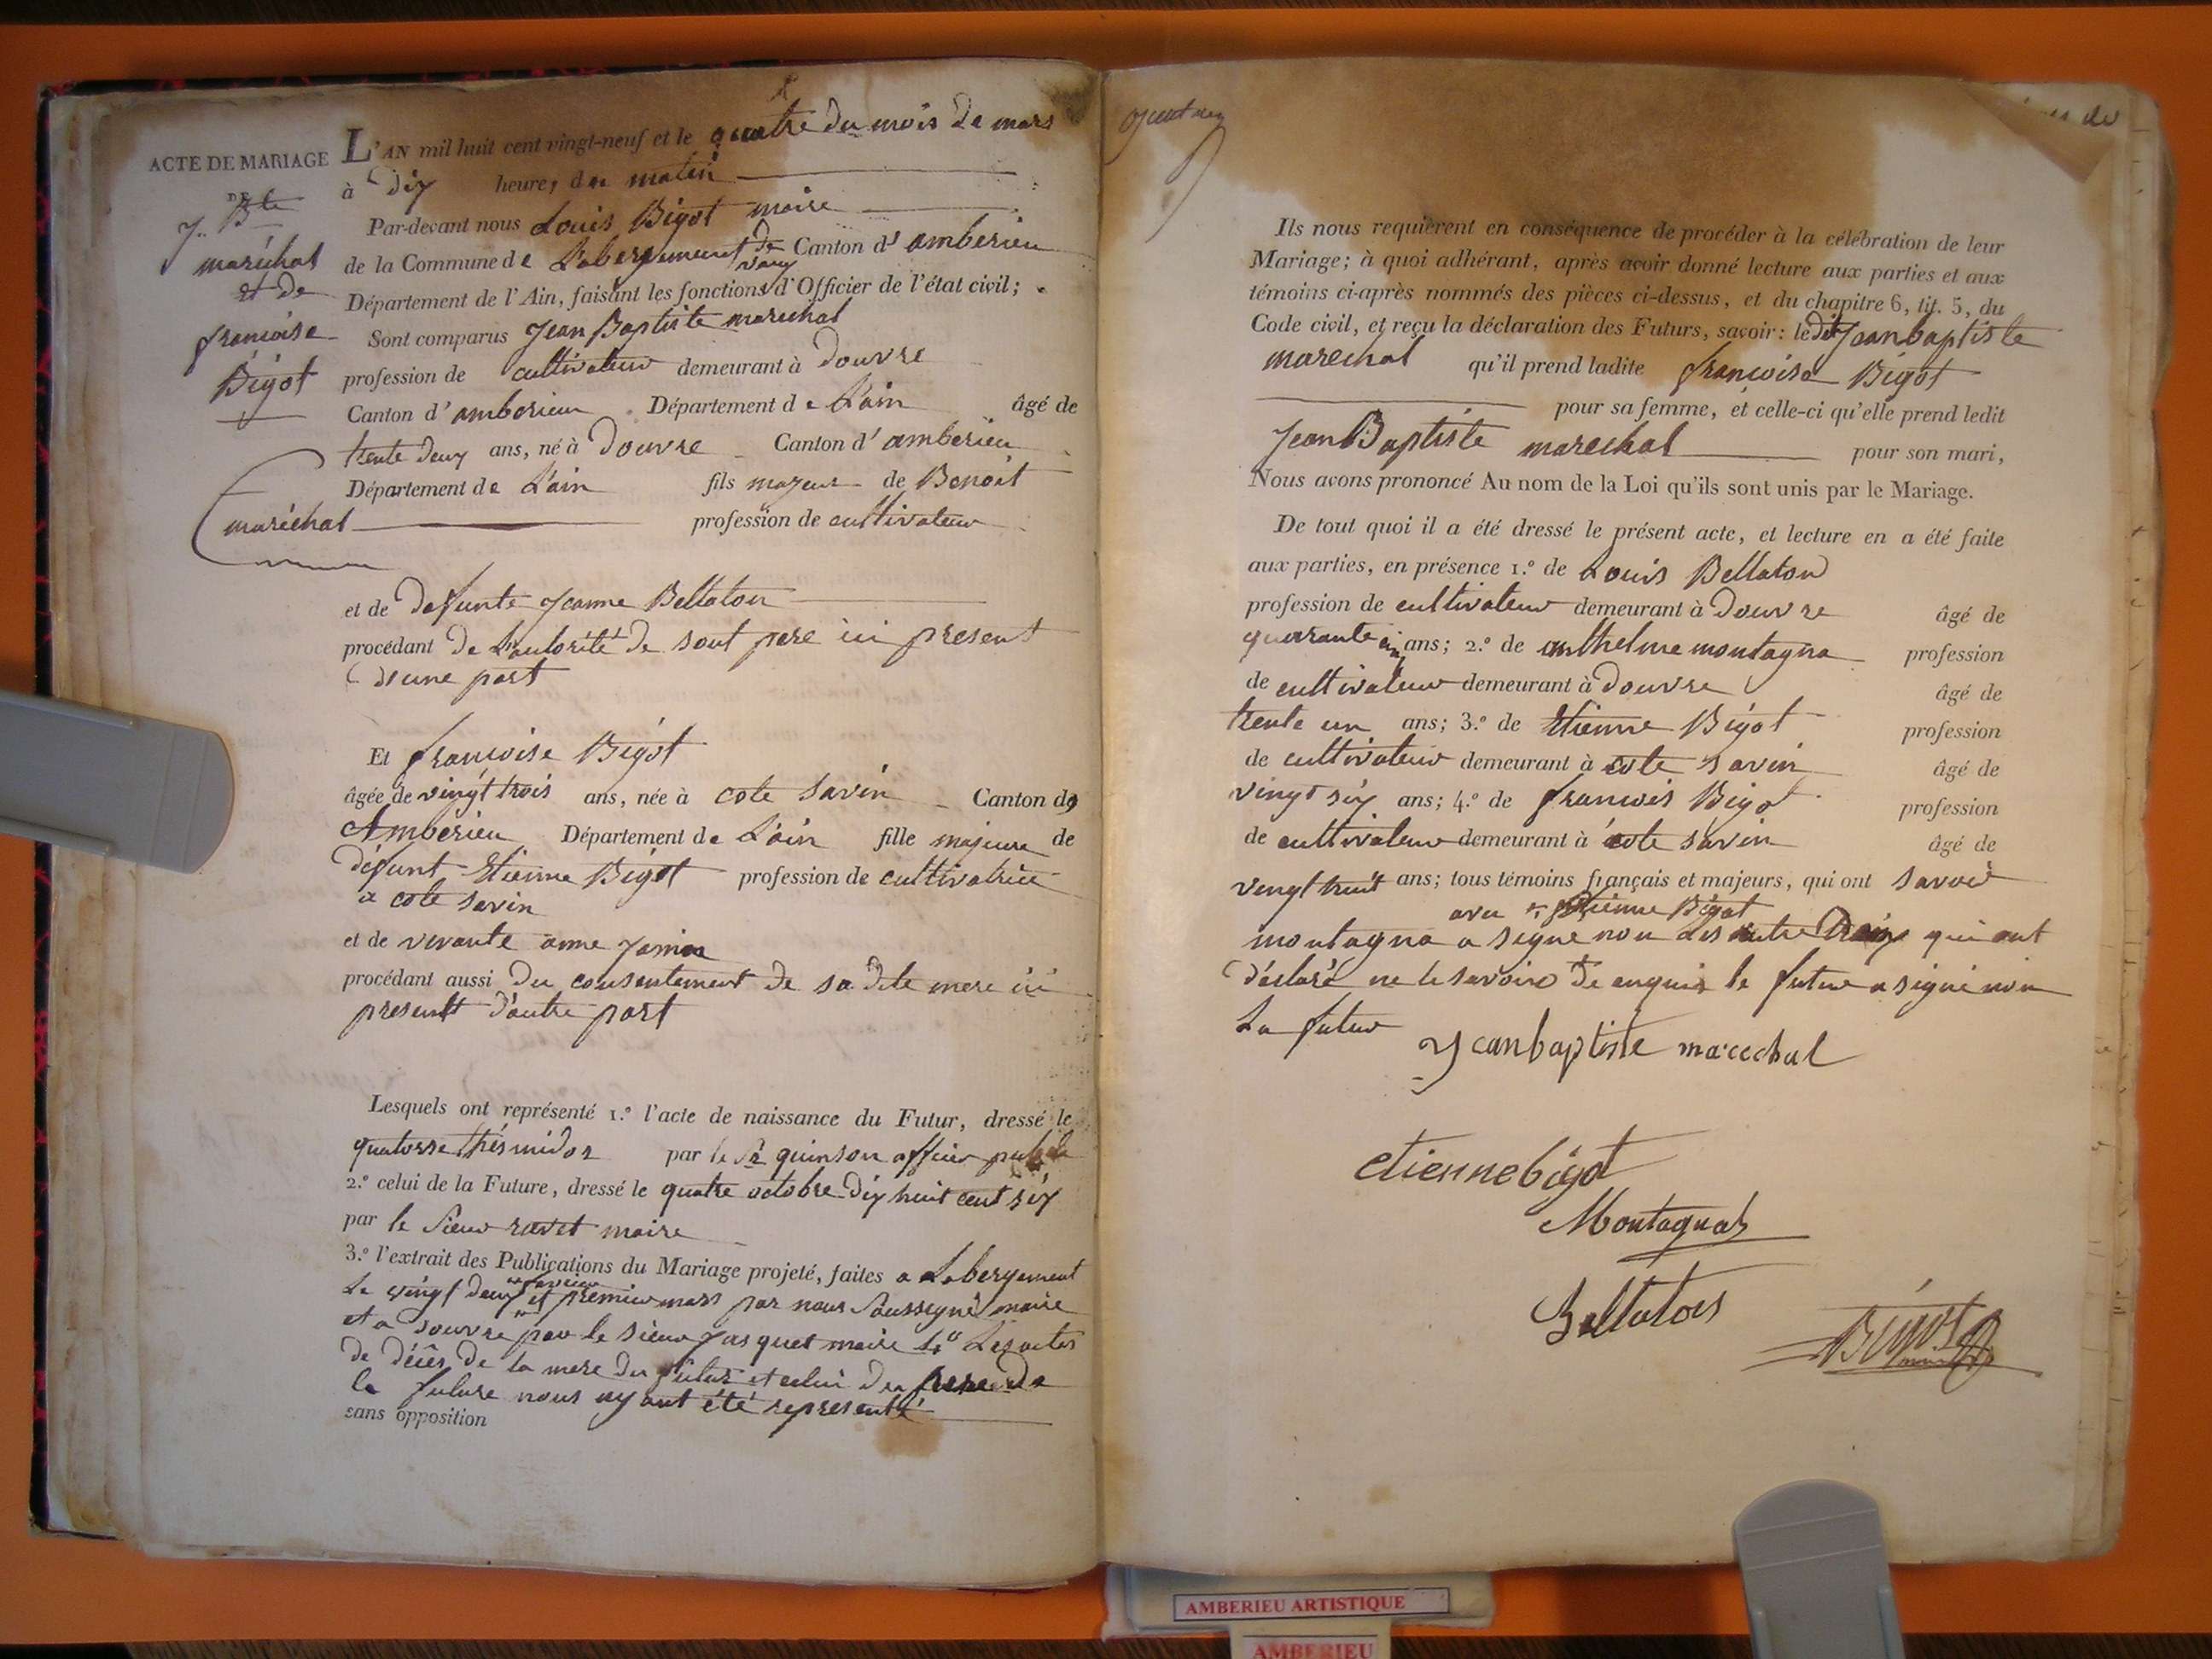 ACTE DE MARIAGE
DE
J. Bte
maréchal
et de
francoise
Bigot
L'AN mil huit cent vingt-neuf et le quatre du mois de mars
à dix heures du matin
Par-devant nous Louis Bigot maire
de la Commune de Labergement de Canton d'amberieu
varey
Département de l'Ain, faisant les fonctions d'Officier de l'état civil;
Sont comparus Jean Baptiste marechal
profession de cultivateur demeurant à Douvre
Canton d'amberieu Département de L'ain âgé de
trente deux ans, né à Douvre Canton d'amberieu
Département de L'ain fils majeur de Benoit
maréchal profession de cultivateur
et de defunte Jeanne Bellaton
procédant de L'autorité de sont pere ici present
d'une part
Et francoise Bigot
âgée de vingt trois ans, née à cote savin Canton d
Amberieu Département de L'ain fille majeure de
défunt Etienne Bigot profession de cultivatrice
a cote savin
et de vivante anne
procédant aussi du consentement de sa dite mere ici
present d'autre part
Lesquels ont représenté 1.º l'acte de naissance du Futur, dressé le
quatorse thérmidor par le Sr quinson officier public
2.º celui de la Future, dressé le quatre octobre dix huit cent six
par le Sieur ravet maire
3.º l'extrait des Publications du Mariage projeté, faites a Labergement
Le vingt deux et premier mars par nous soussigné maire
et a Douvre par le sieur Jasquet maire 4º Les actes
de décés de la mere du futur et celui du pere de
la future nous ayant été representé
sans opposition
Ils nous requièrent en conséquence de procéder à la célébration de leur
Mariage; à quoi adhérant, après avoir donné lecture aux parties et aux
témoins ci-après nommés des pièces ci-dessus, et du chapitre 6, tit. 5, du
Code civil, et reçu la déclaration des Futurs, savoir: le dit Jean baptiste
marechal qu'il prend ladite francoise Bigot
pour sa femme, et celle-ci qu'elle prend ledit
Jean Baptiste marechal pour son mari,
Nous avons prononcé Au nom de la Loi qu'ils sont unis par le Mariage.
De tout quoi il a été dressé le présent acte, et lecture en a été faite
aux parties, en présence 1.º de Louis Bellaton
profession de cultivateur demeurant à Douvre âgé de
quarante cinq ans; 2.º de anthelme montagna profession
de cultivateur demeurant à Douvre âgé de
trente un ans; 3.º de Etienne Bigot profession
de cultivateur demeurant à cote savin âgé de
vingt six ans; 4.º de francois Bigot profession
de cultivateur demeurant à cote savin âgé de
vingt huit ans; tous témoins français et majeurs, qui ont savoir
avec Etienne Bigot
montagna a signe non Les autre qui ont
déclaré ne le savoire de enquis le futur a signé non
La futur
Jean baptiste marechal
etienne bigot
Montagnat
Bellaton
BIGOT
maire
AMBERIEU ARTISTIQUE
AMBERIEU